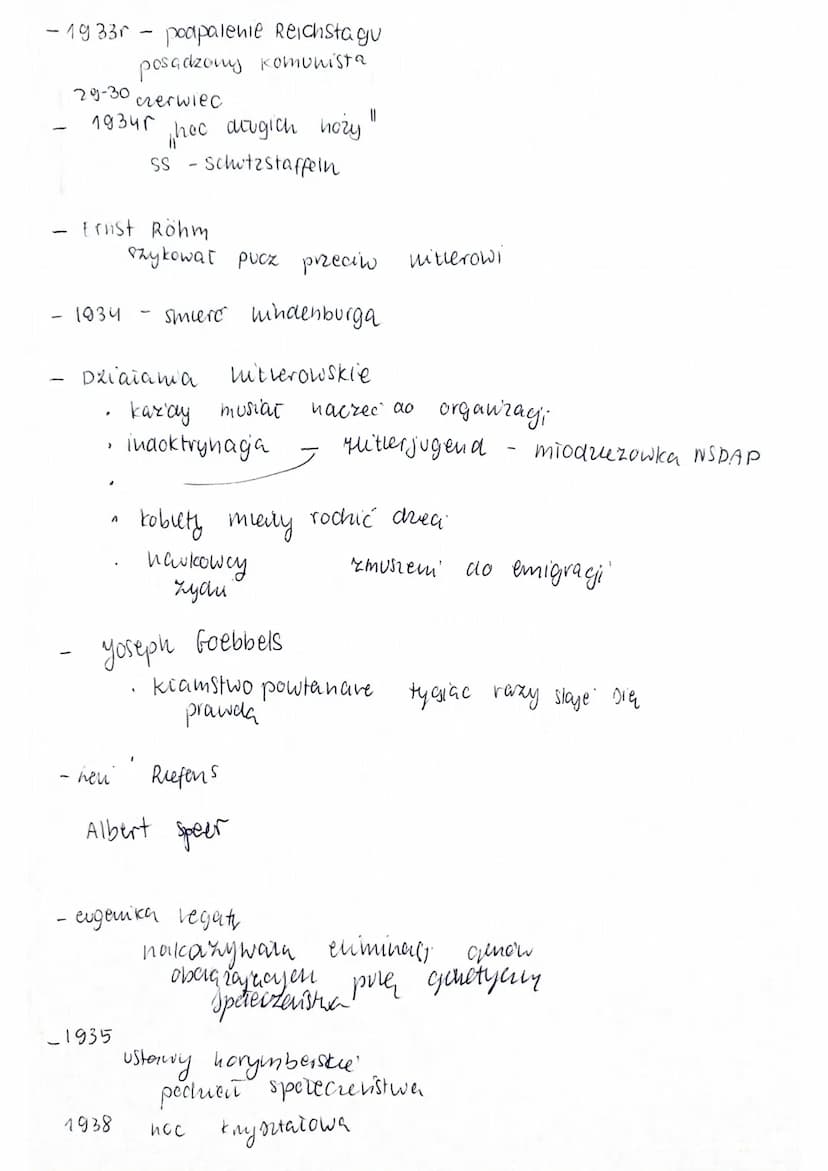 - 1933r - podpalenie Reichstagu
posądzony komunista
29-30 czerwiec
- 1934r „noc długich noży"
SS - Schutzstaffeln
- Ernst Röhm
szykował pucz przeciw Hitlerowi
- 1934 - śmierć Hindenburga
- Działania hitlerowskie
• każdy musiał należeć do organizacji
• indoktrynacja - Hitlerjugend - młodzieżówka NSDAP
•
• kobiety miały rodzić dzieci
• naukowcy zmuszeni do emigracji
żydzi
- Joseph Goebbels
• kłamstwo powtarzane tysiąc razy staje się
prawdą
- Leni Riefens
Albert Speer
- eugenika negaty
nakazywała eliminacj genów
obciążających pulę genetyczną
społeczeństwa
- 1935
ustawy norymberskie
podział społeczeństwa
1938 noc kryształowa